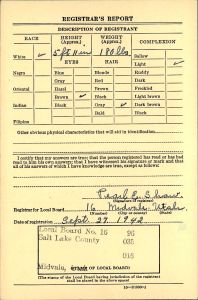 REGISTRAR'S REPORT
DESCRIPTION OF REGISTRANT
RACE
HEIGHT (Approx.)
WEIGHT (Approx.)
COMPLEXION
White ✓
5 ft 11 in
180 lbs
Sallow
Light ✓
EYES
HAIR
Ruddy
Negro
Blue
Blonde
Dark
Gray
Red
Freckled
Oriental
Hazel
Brown
Light brown
Brown ✓
Black
Dark brown
Indian
Black
Gray ✓
Black
Bald
Filipino
Other obvious physical characteristics that will aid in identification
I certify that my answers are true; that the person registered has read or has had read to him his own answers; that I have witnessed his signature or mark and that all of his answers of which I have knowledge are true, except as follows:
Pearl E.
(Signature of registrar)
Registrar for Local Board 16 Midvale, Utah
(Number) (City or county) (State)
Date of registration Sept. 27 1942
Local Board No. 16 96
Salt Lake County 035
016
Midvale,
OF LOCAL BOARD)
(The stamp of the Local Board having jurisdiction of the registrant shall be placed in the above space)